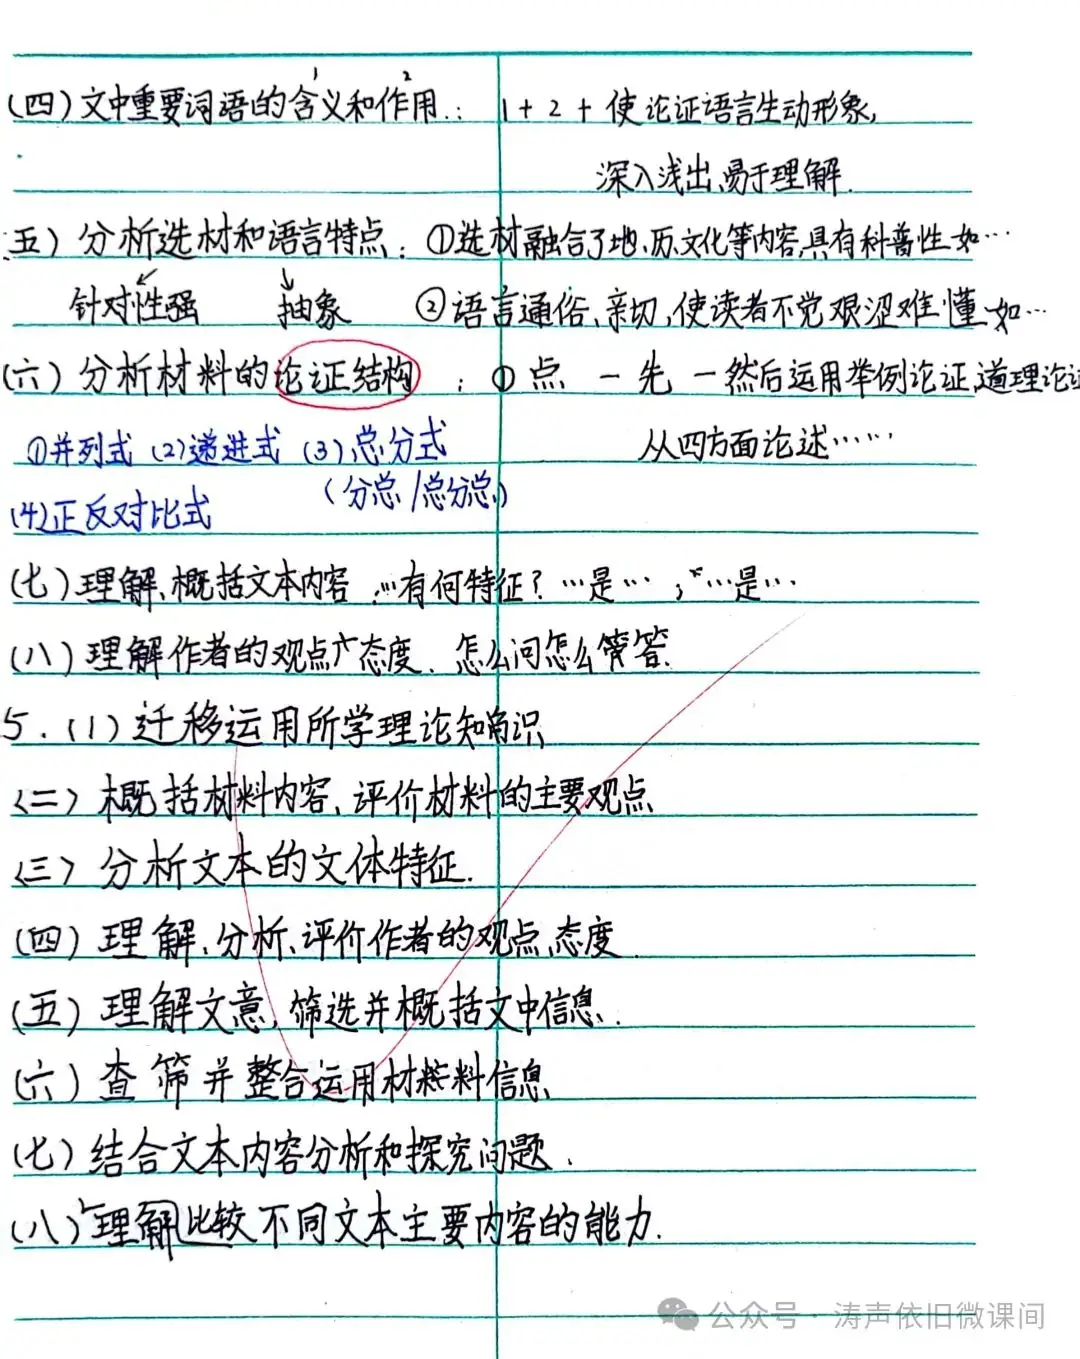 (四)文中重要词语的含义和作用.: 1+2+使论证语言生动形象,
1 2
深入浅出、易于理解.
五)分析选材和语言特点:①选材融合了地、历、文化等内容,具有科普性如…
针对性强 抽象 ②语言通俗、亲切,使读者不觉艰涩难懂如…
(六)分析材料的论证结构:①点-先-然后运用举例论证、道理论证
①并列式 (2)递进式 (3)总分式 从四方面论述……
(4)正反对比式 (分总/总分总)
(七)理解、概括文本内容:…有何特征?…是…;…是…
(八)理解作者的观点、态度.怎么问怎么答.
5.(1)迁移运用所学理论知识
(二)概括材料内容、评价材料的主要观点
(三)分析文本的文体特征.
(四)理解、分析、评价作者的观点、态度.
(五)理解文意,筛选并概括文中信息.
(六)查筛并整合运用材料信息
(七)结合文本内容分析和探究问题.
(八)理解比较不同文本主要内容的能力.
公众号·涛声依旧微课间